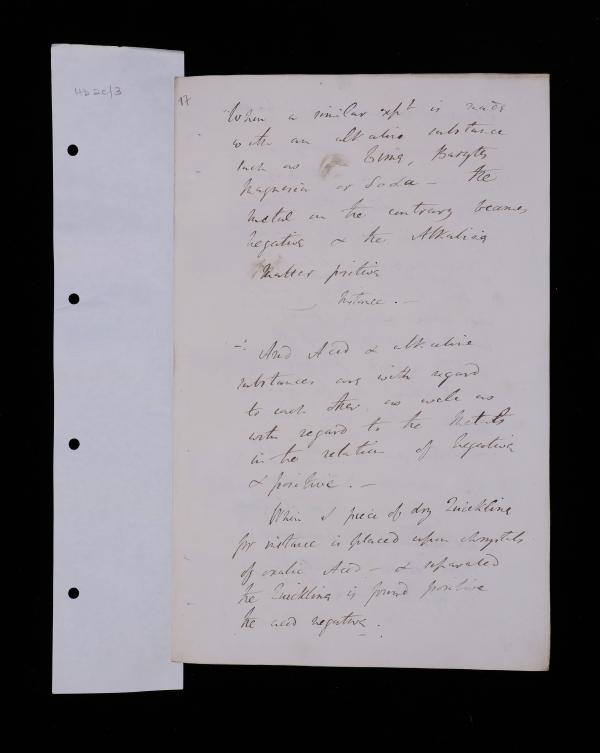 HD 2c/3
17
When a similar expt is made
with an alkaline substance
such as Lime, Barytes
Magnesia or Soda – the
metal on the contrary becomes
negative & the Alkaline
Matter positive
Instance. –
–: And Acid & alkaline
substances are with regard
to each other as well as
with regard to the Metals
in the relation of Negative
& positive. –
When a piece of dry Quicklime
for instance is placed upon chrystals
of oxalic Acid – & separated
the Quicklime is found positive
the acid negative.